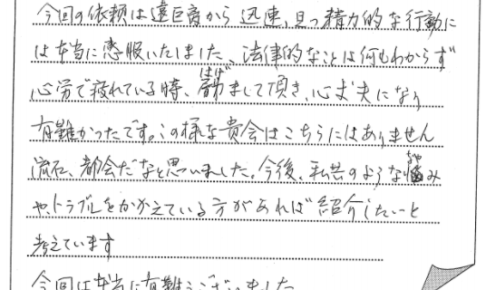 今回の依頼は遠距離から迅速、且つ精力的な行動に
は本当に感服いたしました、法律的なことは何もわからず
心労で疲れている時、励まして頂き、心丈夫になり
はげ
有難かったです。この様な貴会はこちらにはありません
流石、都会だなと思いました。今後、私共のような悩み
や、トラブルをかかえている方があれば紹介したいと
考えています
今回は本当に有難うございました